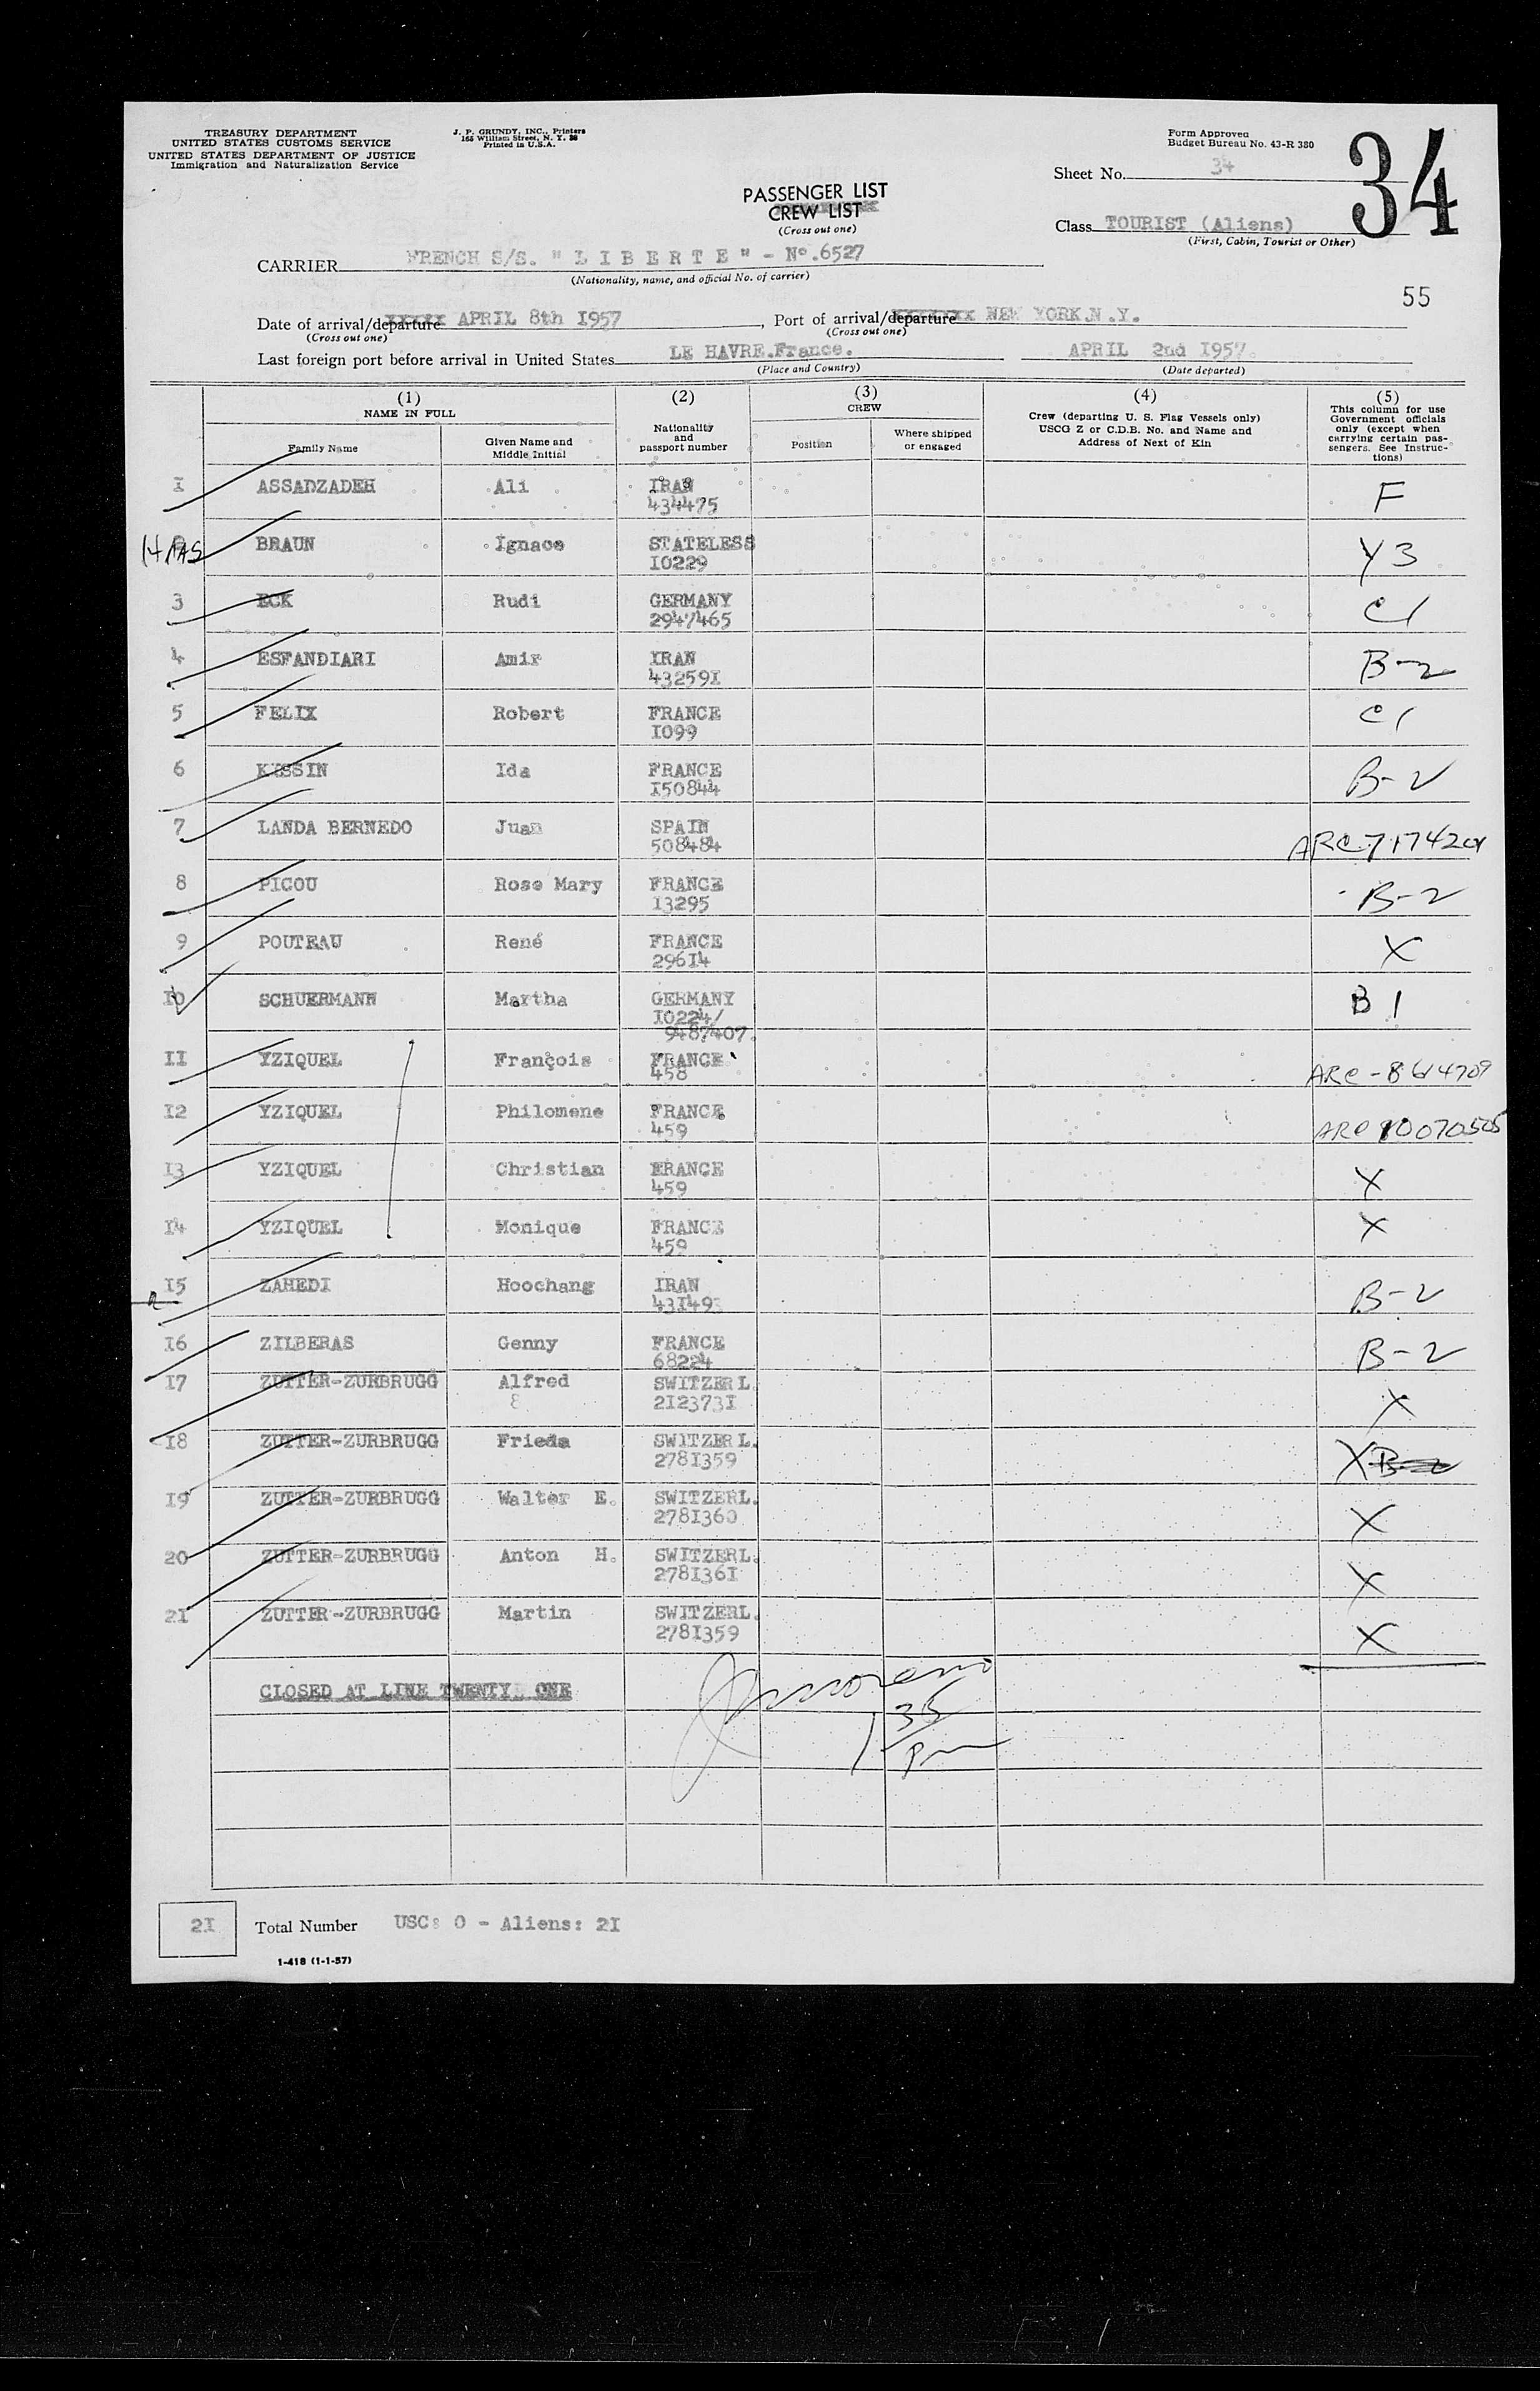 TREASURY DEPARTMENT
UNITED STATES CUSTOMS SERVICE
UNITED STATES DEPARTMENT OF JUSTICE
Immigration and Naturalization Service
J. P. GRUNDY, INC., Printers
165 William Street, N. Y. 38
Printed in U.S.A.
Form Approved
Budget Bureau No. 43-R 380
34
Sheet No. 34
PASSENGER LIST
CREW LIST
(Cross out one)
Class TOURIST (Aliens)
(First, Cabin, Tourist or Other)
CARRIER FRENCH S/S. " L I B E R T E " - No.6527
(Nationality, name, and official No. of carrier)
55
Date of arrival/departure APRIL 8th I957, Port of arrival/departure NEW YORK.N.Y.
(Cross out one) (Cross out one)
Last foreign port before arrival in United States LE HAVRE.France. APRIL 2nd I957.
(Place and Country) (Date departed)
(1) NAME IN FULL
Family Name
Given Name and Middle Initial
(2) Nationality and passport number
(3) CREW
Position
Where shipped or engaged
(4) Crew (departing U. S. Flag Vessels only) USCG Z or C.D.B. No. and Name and Address of Next of Kin
(5) This column for use Government officials only (except when carrying certain passengers. See Instructions)
I ASSADZADEH Ali IRAN F
434475
BRAUN Ignace STATELESS Y3
I0229
3 ECK Rudi GERMANY C1
2947465
4 ESFANDIARI Amir IRAN B-2
43259I
5 FELIX Robert FRANCE C1
I099
6 KESSIN Ida FRANCE B-2
I50844
7 LANDA BERNEDO Juan SPAIN
50484
8 PICOU Rose Mary FRANCE B-2
I3295
9 POUTEAU René FRANCE X
296I4
I0 SCHUERMANN Martha GERMANY B 1
I0224/
9487407.
II YZIQUEL François FRANCE
458
I2 YZIQUEL Philomene FRANCE
459
I3 YZIQUEL Christian FRANCE X
459
I4 YZIQUEL Monique FRANCE X
459
I5 ZAHEDI Hoochang IRAN B-2
43I493
I6 ZILBERAS Genny FRANCE B-2
68224
I7 ZUTTER-ZURBRUGG Alfred SWITZERL. X
8 2I2373I
I8 ZUTTER-ZURBRUGG Frieda SWITZERL. X B-2
278I359
I9 ZUTTER-ZURBRUGG Walter E. SWITZERL. X
278I360
20 ZUTTER-ZURBRUGG Anton H. SWITZERL. X
278I36I
2I ZUTTER-ZURBRUGG Martin SWITZERL. X
278I359
CLOSED AT LINE TWENTY ONE
1 35
Pm
2I Total Number USC: 0 - Aliens: 2I
1-418 (1-1-57)